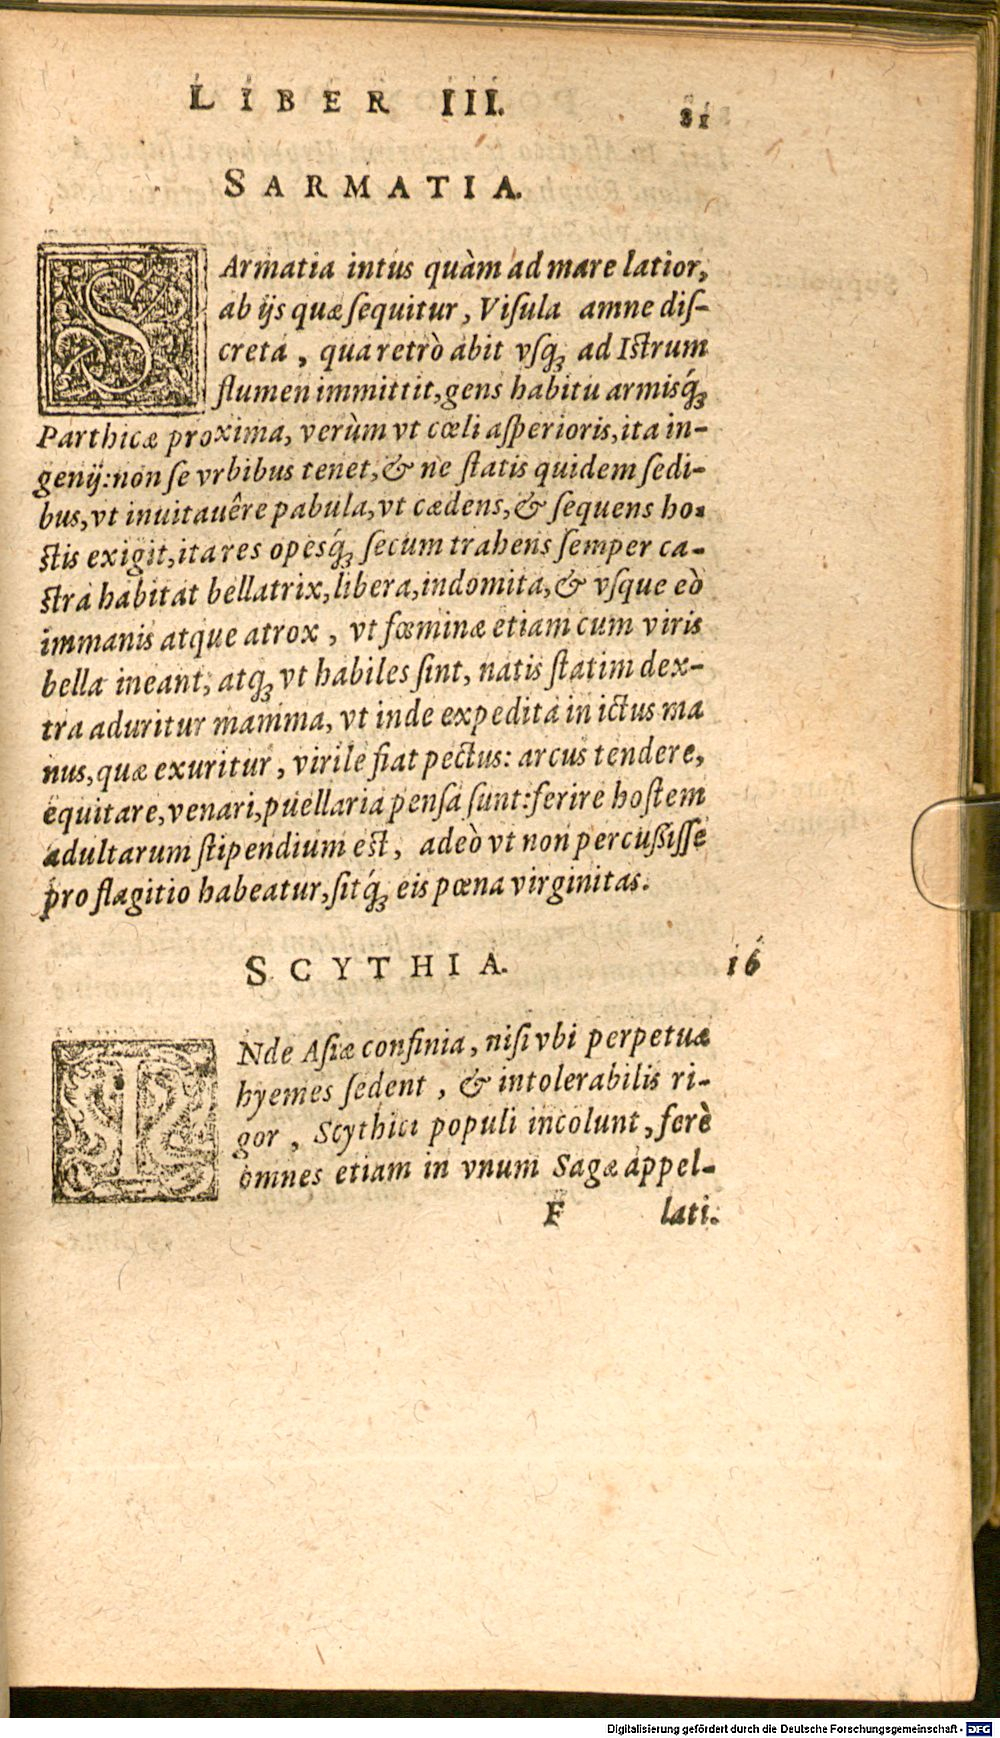 LIBER III. 81
SARMATIA.
SArmatia intus quàm ad mare latior,
ab ijs quæ sequitur, Visula amne dis-
creta, qua retrò abit vsq́; ad Istrum
flumen immittit, gens habitu armisq́;
Parthicæ proxima, verùm vt cœli asperioris, ita in-
genij: non se vrbibus tenet, & ne statis quidem sedi-
bus, vt inuitauêre pabula, vt cædens, & sequens ho-
stis exigit, ita res opesq́; secum trahens semper ca-
stra habitat bellatrix, libera, indomita, & vsque eò
immanis atque atrox, vt fœminæ etiam cum viris
bella ineant; atq; vt habiles sint, natis statim dex-
tra aduritur mamma, vt inde expedita in ictus ma
nus, quæ exuritur, virile fiat pectus: arcus tendere,
equitare, venari, puellaria pensa sunt: ferire hostem
adultarum stipendium est, adeò vt non percussisse
pro flagitio habeatur, sitq́; eis pœna virginitas.
SCYTHIA. 16
INde Asiæ confinia, nisi vbi perpetuæ
hyemes sedent, & intolerabilis ri-
gor, Scythici populi incolunt, ferè
omnes etiam in vnum Sagæ appel-
F lati.
Digitalisierung gefördert durch die Deutsche Forschungsgemeinschaft - DFG